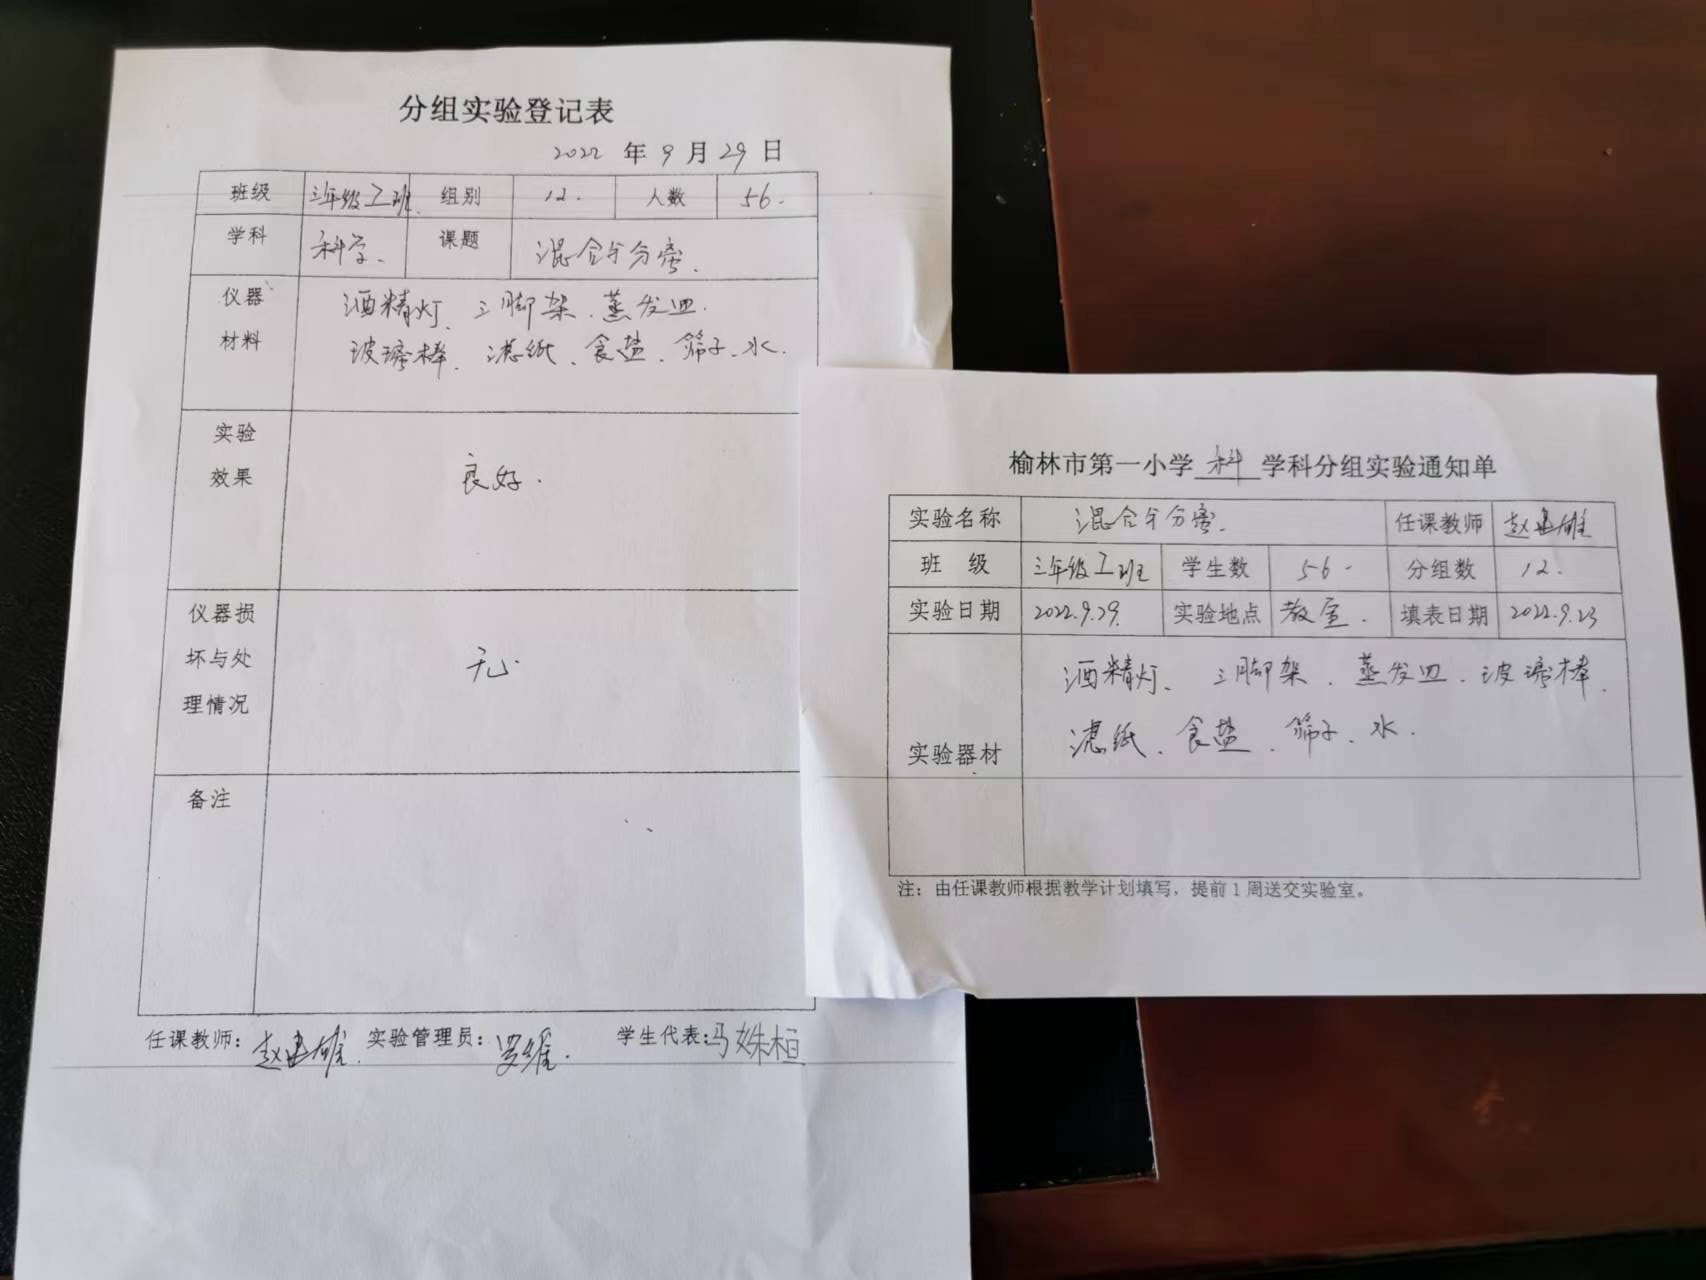 分组实验登记表
2022 年 9 月 29 日
班级 三年级工班. 组别 12. 人数 56.
学科 科学. 课题 混合与分离.
仪器 酒精灯、三脚架、蒸发皿.
材料 玻璃棒、滤纸、食盐、筛子、水.
实验
效果 良好.
仪器损
坏与处 无.
理情况
备注
任课教师: 赵建雄 实验管理员: 罗维. 学生代表: 马姝桓
榆林市第一小学 科 学科分组实验通知单
实验名称 混合与分离. 任课教师 赵建雄
班 级 三年级工班 学生数 56. 分组数 12.
实验日期 2022.9.29. 实验地点 教室. 填表日期 2022.9.23
酒精灯、三脚架、蒸发皿、玻璃棒、
滤纸、食盐、筛子、水.
实验器材
注: 由任课教师根据教学计划填写,提前1周送交实验室。